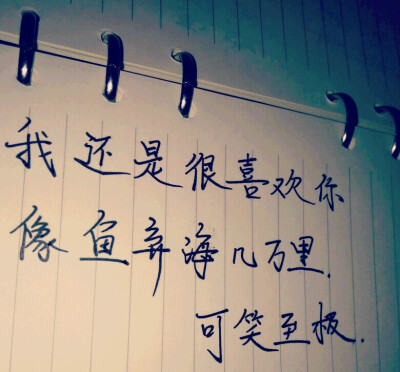 我还是很喜欢你
像鱼弃海几万里.
可笑至极.